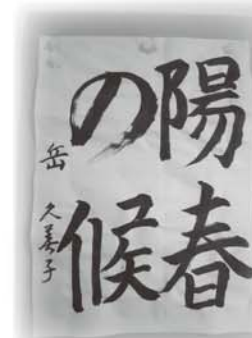 陽春
の候
岳 久美子